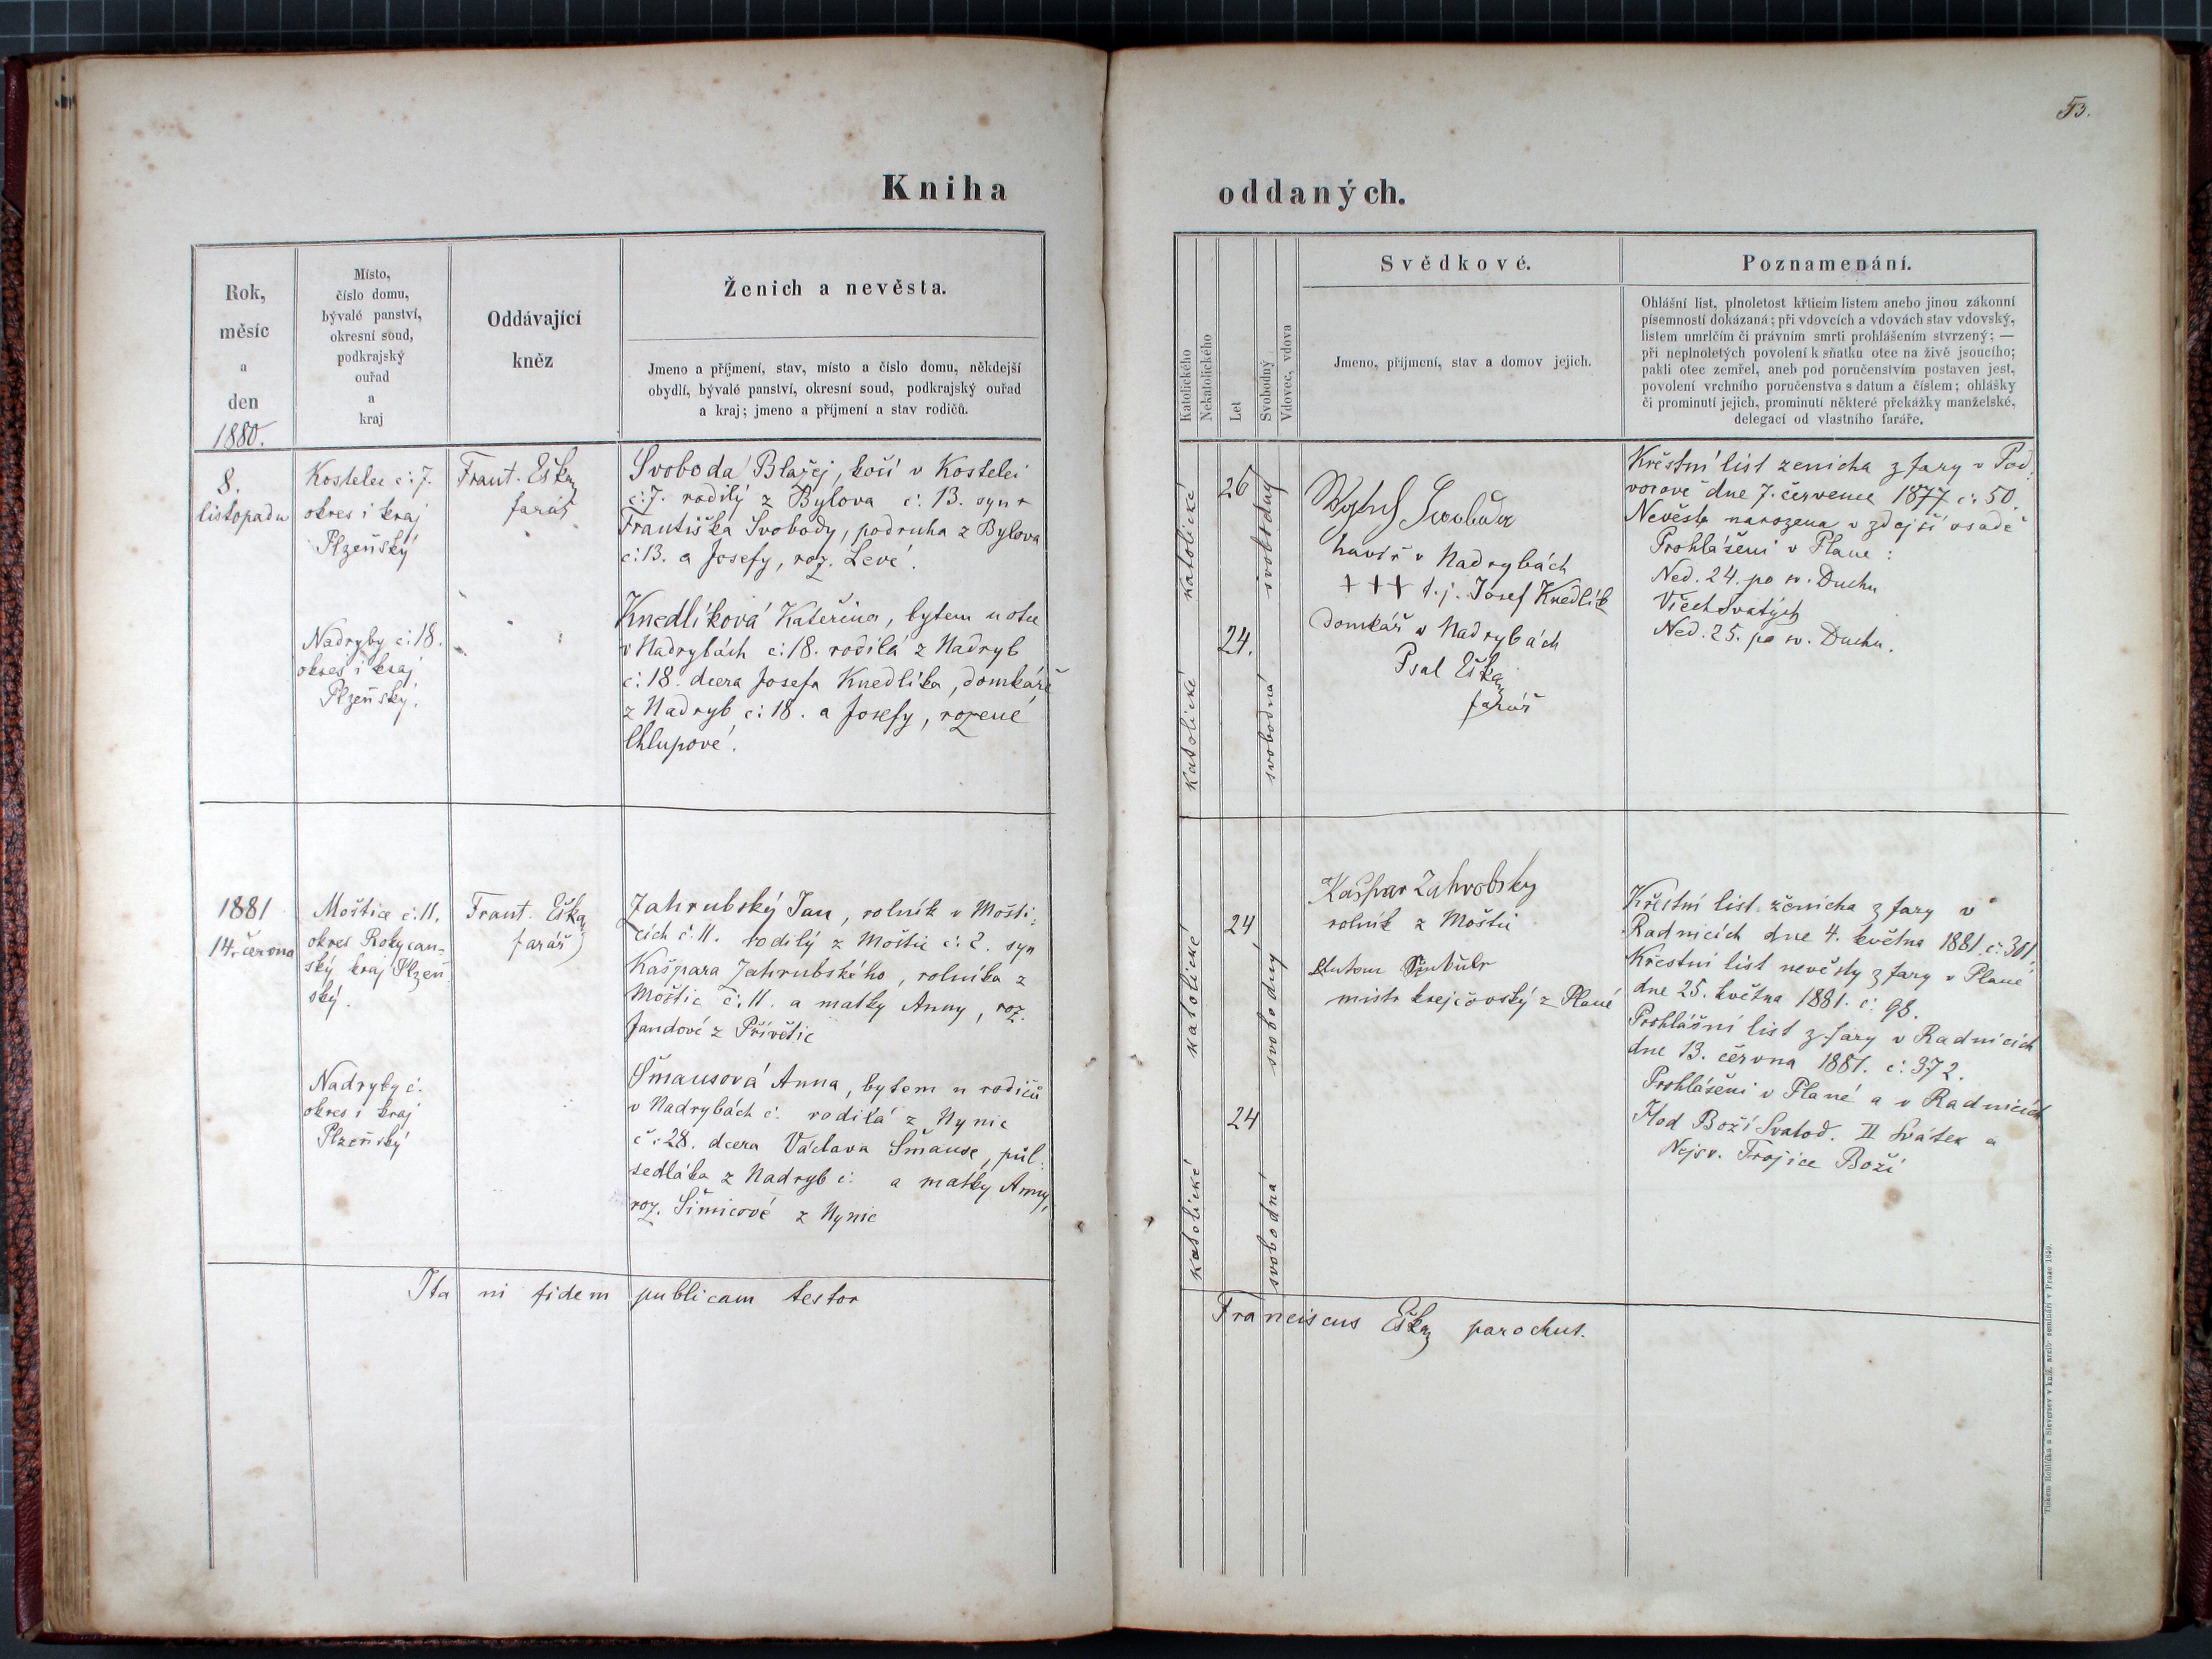 53.
Kniha
oddaných.
Rok,
měsíc
a
den
1880.
Místo,
číslo domu,
bývalé panství,
okresní soud,
podkrajský
ouřad
a
kraj
Oddávající
kněz
Ženich a nevěsta.
Jmeno a příjmení, stav, místo a číslo domu, někdejší
obydlí, bývalé panství, okresní soud, podkrajský ouřad
a kraj; jmeno a příjmení a stav rodičů.
Katolického
Nekatolického
Let
Svobodný
Vdovec, vdova
Svědkové.
Jmeno, příjmení, stav a domov jejich.
Poznamenání.
Ohlášní list, plnoletost křticím listem anebo jinou zákonní
písemností dokázaná; při vdovcích a vdovách stav vdovský,
listem umrlčím či právním smrti prohlášením stvrzený; —
při neplnoletých povolení k sňatku otce na živě jsoucího;
pakli otec zemřel, aneb pod poručenstvím postaven jest,
povolení vrchního poručenstva s datum a číslem; ohlášky
či prominutí jejich, prominutí některé překážky manželské,
delegací od vlastního faráře.
8.
listopadu
Kostelec č: 7.
okres i kraj
Plzeňský
Frant. Eška
farář
Svoboda Blažej, kočí v Kostelci
č: 7. rodilý z Bylova č: 13. syn +
Františka Svobody, podruha z Bylova
č: 13. a Josefy, roz. Levé.
Nadryby č: 18.
okres i kraj
Plzeňský.
Knedlíková Kateřina, bytem u otce
v Nadrybách č: 18. rodilá z Nadryb
č: 18. dcera Josefa Knedlíka, domkáře
z Nadryb č: 18. a Josefy, rozené
Chlupové.
katolické
26
svobodný
katolické
24.
svobodná
Svoboda
havíř v Nadrybách
+++ t. j. Josef Knedlík
domkář v Nadrybách
Psal Eška
farář
Křestní list ženicha z fary v Pod
vorové dne 7. července 1877 č: 50.
Nevěsta narozena v zdejší osadě
Prohlášeni v Plane:
Ned. 24. po sv. Duchu
Všech Svatých
Ned. 25. po sv. Duchu.
1881
14. června
Moštice č: 11.
okres Rokycan-
ský kraj Plzeň
ský.
Frant. Eška
farář
Zahrubský Jan, rolník v Mošti-
cích č: 11. rodilý z Moštic č: 2. syn
Kašpara Zahrubského, rolníka z
Moštic č: 11. a matky Anny, roz.
Jandové z Přívětic
Nadryby č.
okres i kraj
Plzeňský
Šmausová Anna, bytem u rodičů
v Nadrybách č: rodilá z Nynic
č: 28. dcera Václava Šmause, půl-
sedláka z Nadryb č: a matky Anny,
roz. Šimicové z Nynic
katolické
24
svobodný
katolické
24
svobodná
Kašpar Zahrobsky
rolník z Moštic
Antonn
mistr krejčovský z Plané
Křestní list ženicha z fary v
Radnicích dne 4. května 1881. č: 311.
Křestní list nevěsty z fary v Plané
dne 25. května 1881. č: 98.
Prohlášní list z fary v Radnicích
dne 13. června 1881. č: 372.
Prohlášeni v Plané a v Radnicích
Hod Boží Svatod. II Svátek a
Nejsv. Trojice Boží
Ita in fidem publicam testor
Franciscus Eška parochus.
Tiskem Rohlíčka a Sieversev v kníž. arcib. semináři v Praze 1849.